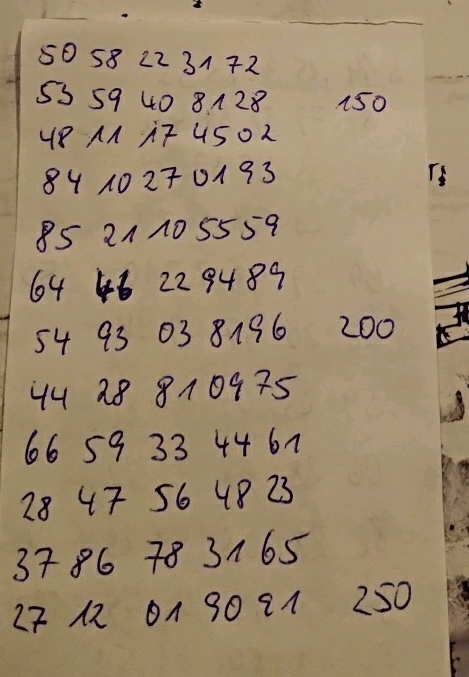 50 58 22 31 72
53 59 40 8128 150
48 11 17 4502
84 10 27 01 93
85 21 10 5559
64 46 22 94 89
54 93 03 8196 200
44 28 81 0975
66 59 33 44 61
28 47 56 48 23
37 86 78 31 65
27 12 01 90 91 250